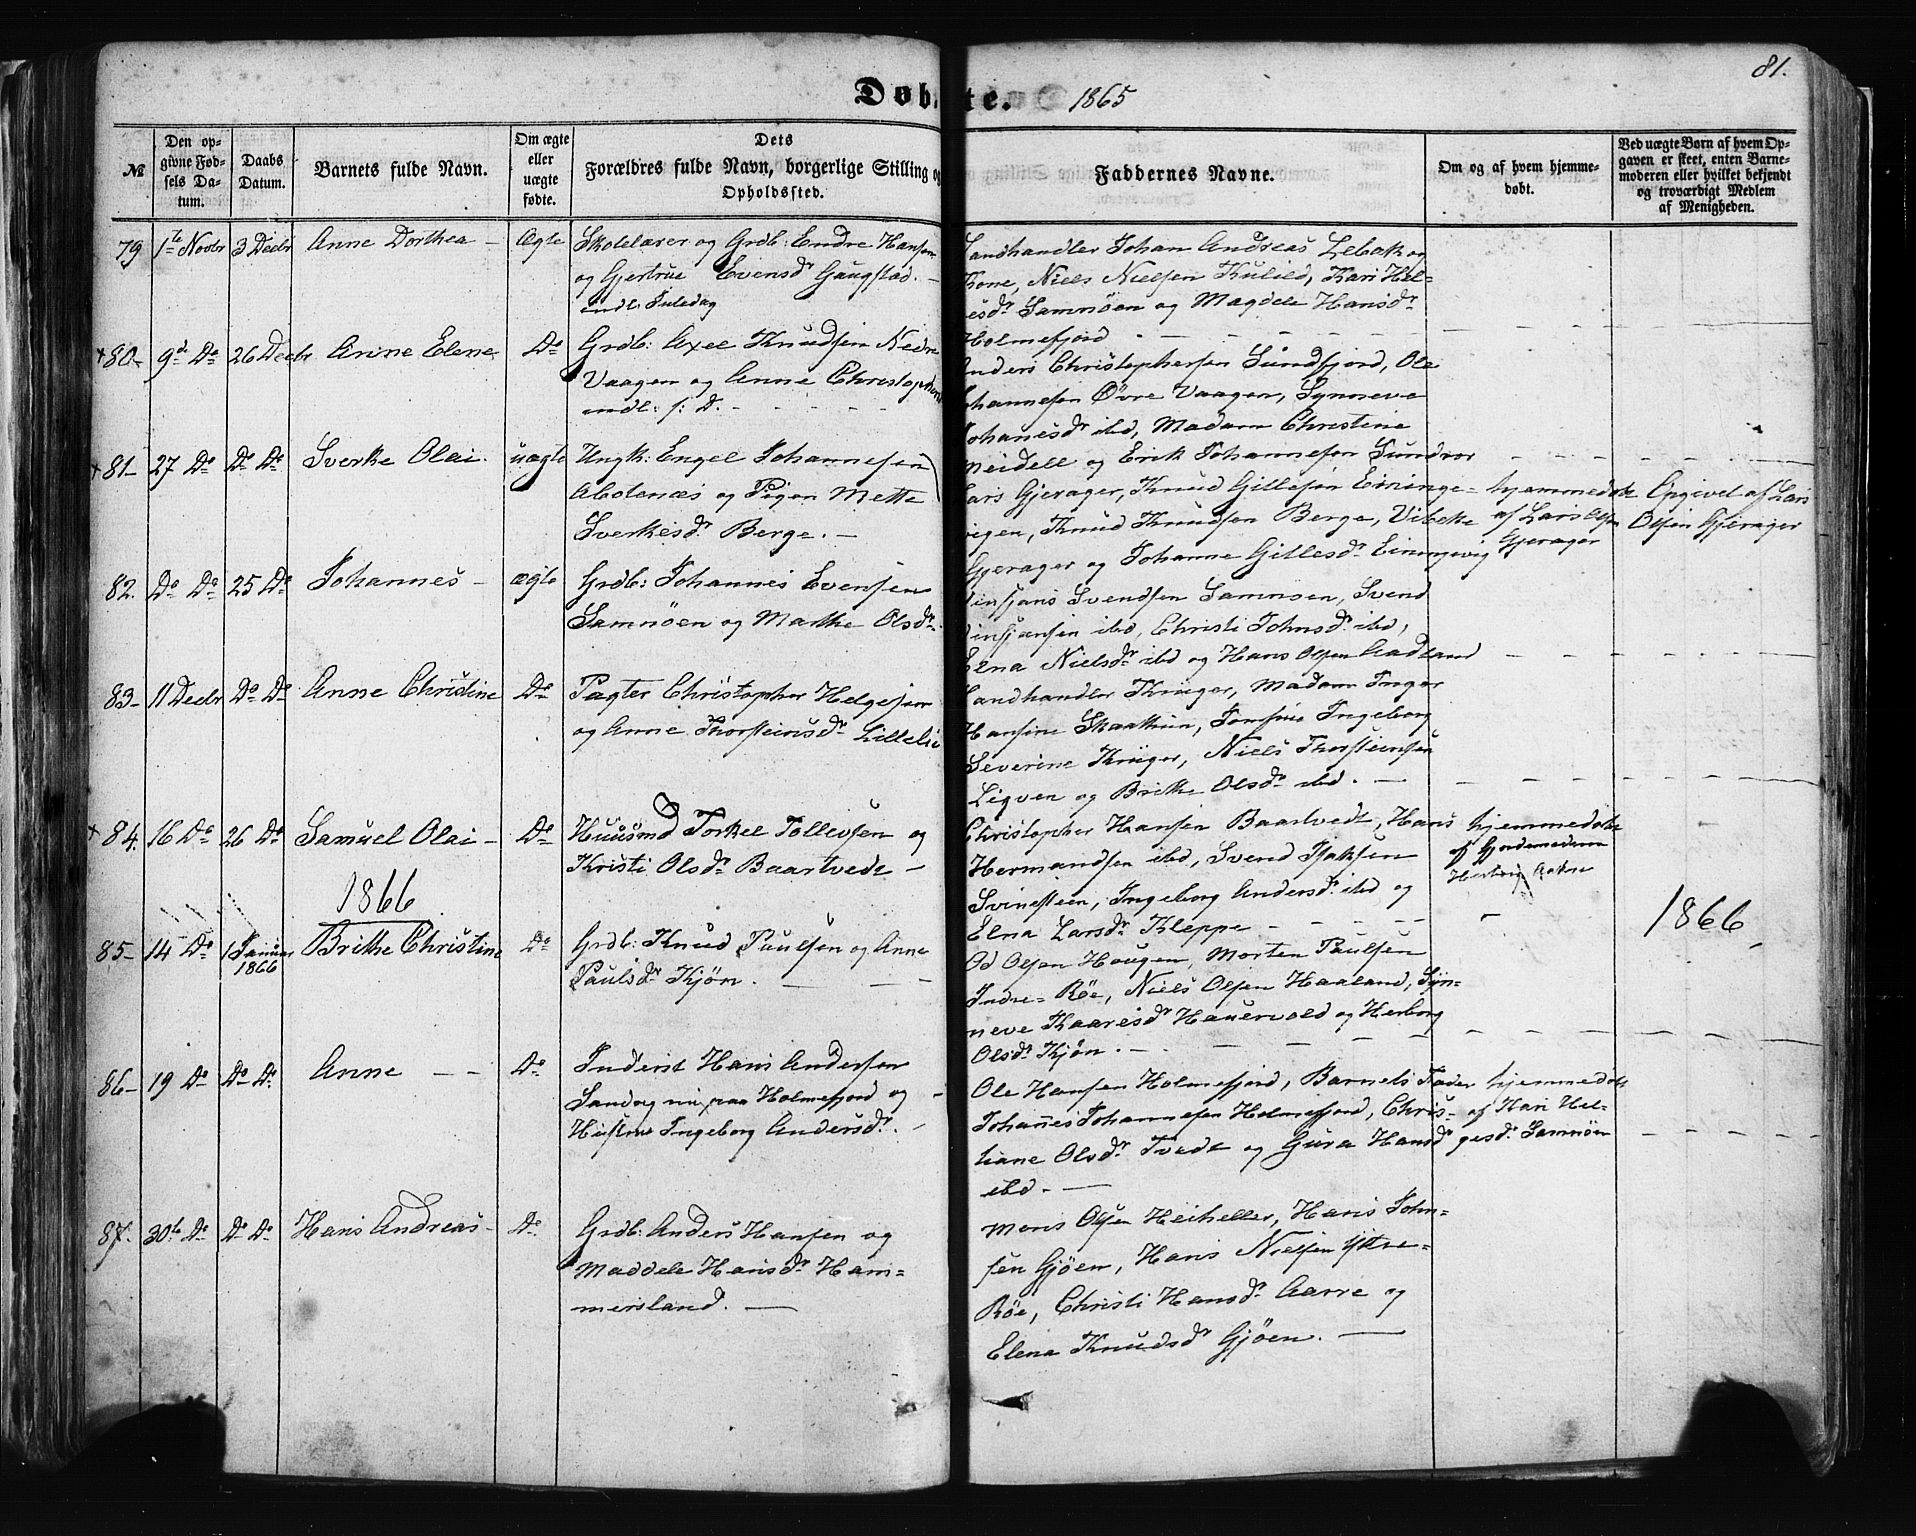 81.
Døbte. 1865
№
Den op-
givne Fød-
sels Da-
tum.
Daabs
Datum.
Barnets fulde Navn.
Om ægte
eller
uægte
fødte.
Dets
Forældres fulde Navn, borgerlige Stilling og
Opholdssted.
Faddernes Navne.
Om og af hvem hjemme-
døbt.
Ved uægte Børn af hvem Op-
gaven er skeet, enten Barne-
moderen eller hvilket bekjendt
og troværdigt Medlem
af Menigheden.
79 1te Novbr 3 Decbr Anne Dorthea - Ægte Skolelærer og Grdb: Endre Hansen
og Gjertrue Evensdr Gaugstad. -
indl: Juledag
Landhandler Johan Andreas Lebak og
Kone, Niels Nielsen Kulild, Kari Hel-
gesdr Samnøen og Magdele Hansdr
Holmefjord
+ 80- 9de Do 26 Decbr Anne Elene Do Grdb: Axel Knudsen Nedre
Vaagen og Anne Christophersd
indl: s: D.
Anders Christophersen Sundfjord, Ole
Johannesen Øvre Vaagen, Synneve
Johanesdr ibd, Madam Christine
Meidell og Erik Johannesen Sundvor
+ 81- 27 Do Do Do Sverke Olai. uægte Ungk: Engel Johannesen
Aldenæs og Pigen Mette
Sverkesdr Berge. -
Lars Gjerager, Knud Gillesen Eininge-
vigen, Knud Knudsen Berge, Vibeke
Gjerager og Johanne Gillesdr Einingevig
hjemmedøbt
af Lars Olsen
Gjerager
Opgivet af Lars
Olsen Gjerager
82. Do Do 25 Do Johannes - ægte Grdb: Johannes Evensen
Samnøen og Marthe Olsdr.
Vinsjans Svendsen Samnøen, Svend
Vinsjansen ibd, Christi Johnsdr ibd,
Elna Nielsdr ibd og Hans Olsen Aadland
83- 11 Decbr Do Do Anne Christine Do Pagter Christopher Helgesen
og Anne Thorsteinsdr Lillelie
Landhandler Krüger, Madam Inger
Hansine Skaathun, Jomfrue Ingeborg
Severine Krüger, Niels Thorsteinsen
Ligven og Brithe Olsdr ibd. -
+ 84. 16 Do 26 Do Samuel Olai - Do Huusmd Torkel Tollevsen og
Kristi Olsdr Baartvedt -
Christopher Hansen Baartvedt, Hans
Hermandsen ibd, Svend Isaksen
Svinesteen, Ingeborg Andersdr ibd og
Elna Larsdr Kleppe -
hjemmedøbt
af Gjordemoderen
1866
1866
85- 14 Do 1 Januar
1866
Brithe Christine Do Grdb: Knud Paulsen og Anne
Paulsdr Kjøn.
Od Olsen Hougen, Morten Paulsen
Indre- Røe, Niels Olsen Haaland, Syn-
neve Kaaresdr Hauervold og Herborg
Olsdr Kjøn.
86- 19 Do Do Do Anne - - Do Inderst Hans Andersen
Sandvig nu paa Holmefjord og
Hustrue Ingeborg Andersdr.
Ole Hansen Holmefjord, Barnets Fader
Johanes Johannesen Holmefjord, Chris-
tiane Olsdr Tvedt og Gura Hansdr
ibd. -
hjemmedøbt
af Kari Hel-
gesdr Samnøen
87. 30te Do Do Do Hans Andreas - Do Grdb: Anders Hansen og
Maddele Hansdr Ham=
mersland. -
Mons Olsen Heiheller, Hans John-
sen Gjøen, Hans Nielsen Yttre-
Røe, Christi Hansdr Aarre og
Elena Knudsdr Gjøen. -